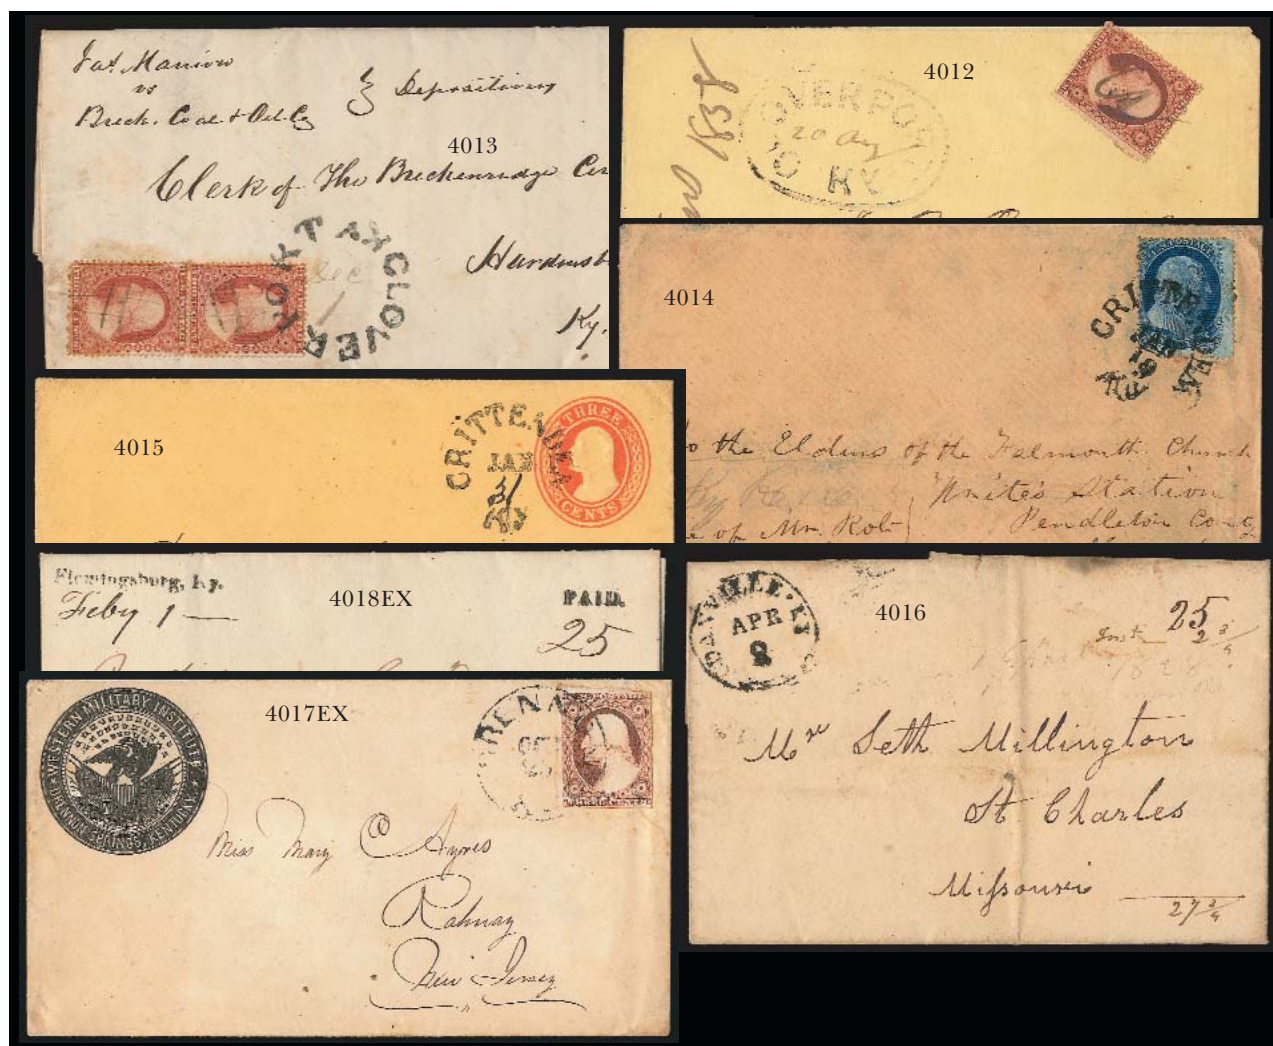 Jas. Manion
vs
Brech. Coal & Oil Co
Depositions
4013
Clerk of The Breckenridge Cir
Hardinsb
Ky.
CLOVERPORT KY
Dec
1
4012
1858
CLOVERPORT
20 Aug
KY
4014
CRITTENDEN
JAN
19
KY
to the Elders of the Falmouth Church
Station
e of Mr. Robt
Pendleton Conty
4015
CRITTENDEN
JAN
31
KY.
THREE
CENTS
Flemingsburg, Ky.
Feby 1 —
4018EX
PAID.
25
4016
DANVILLE·KY
APR
8
25
2 3/4
Mr Seth Millington
St Charles
Missouri
27 3/4
4017EX
WESTERN MILITARY INSTITUTE
DRENNON SPRINGS, KENTUCKY
DRENN
Miss Mary C Aynes
Rahway
New Jersey